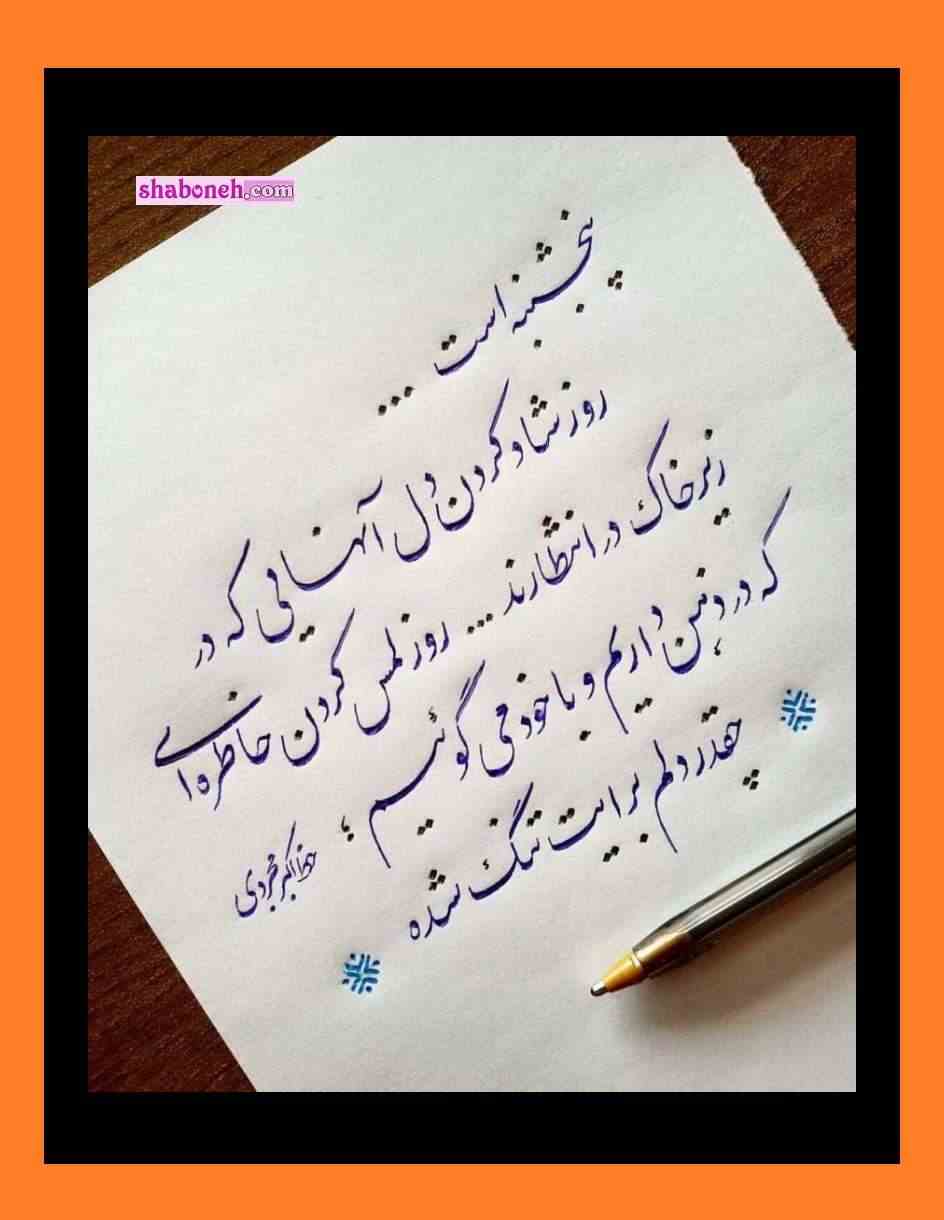 shaboneh.com
پنجشنبه است ...
روز شاد کردن دل آنهایی که در
زیر خاک در انتظارند ... روز لمس کردن خاطره‌ای
که در ذهن داریم و با خود می گوئیم ؛
چقدر دلم برایت تنگ شده